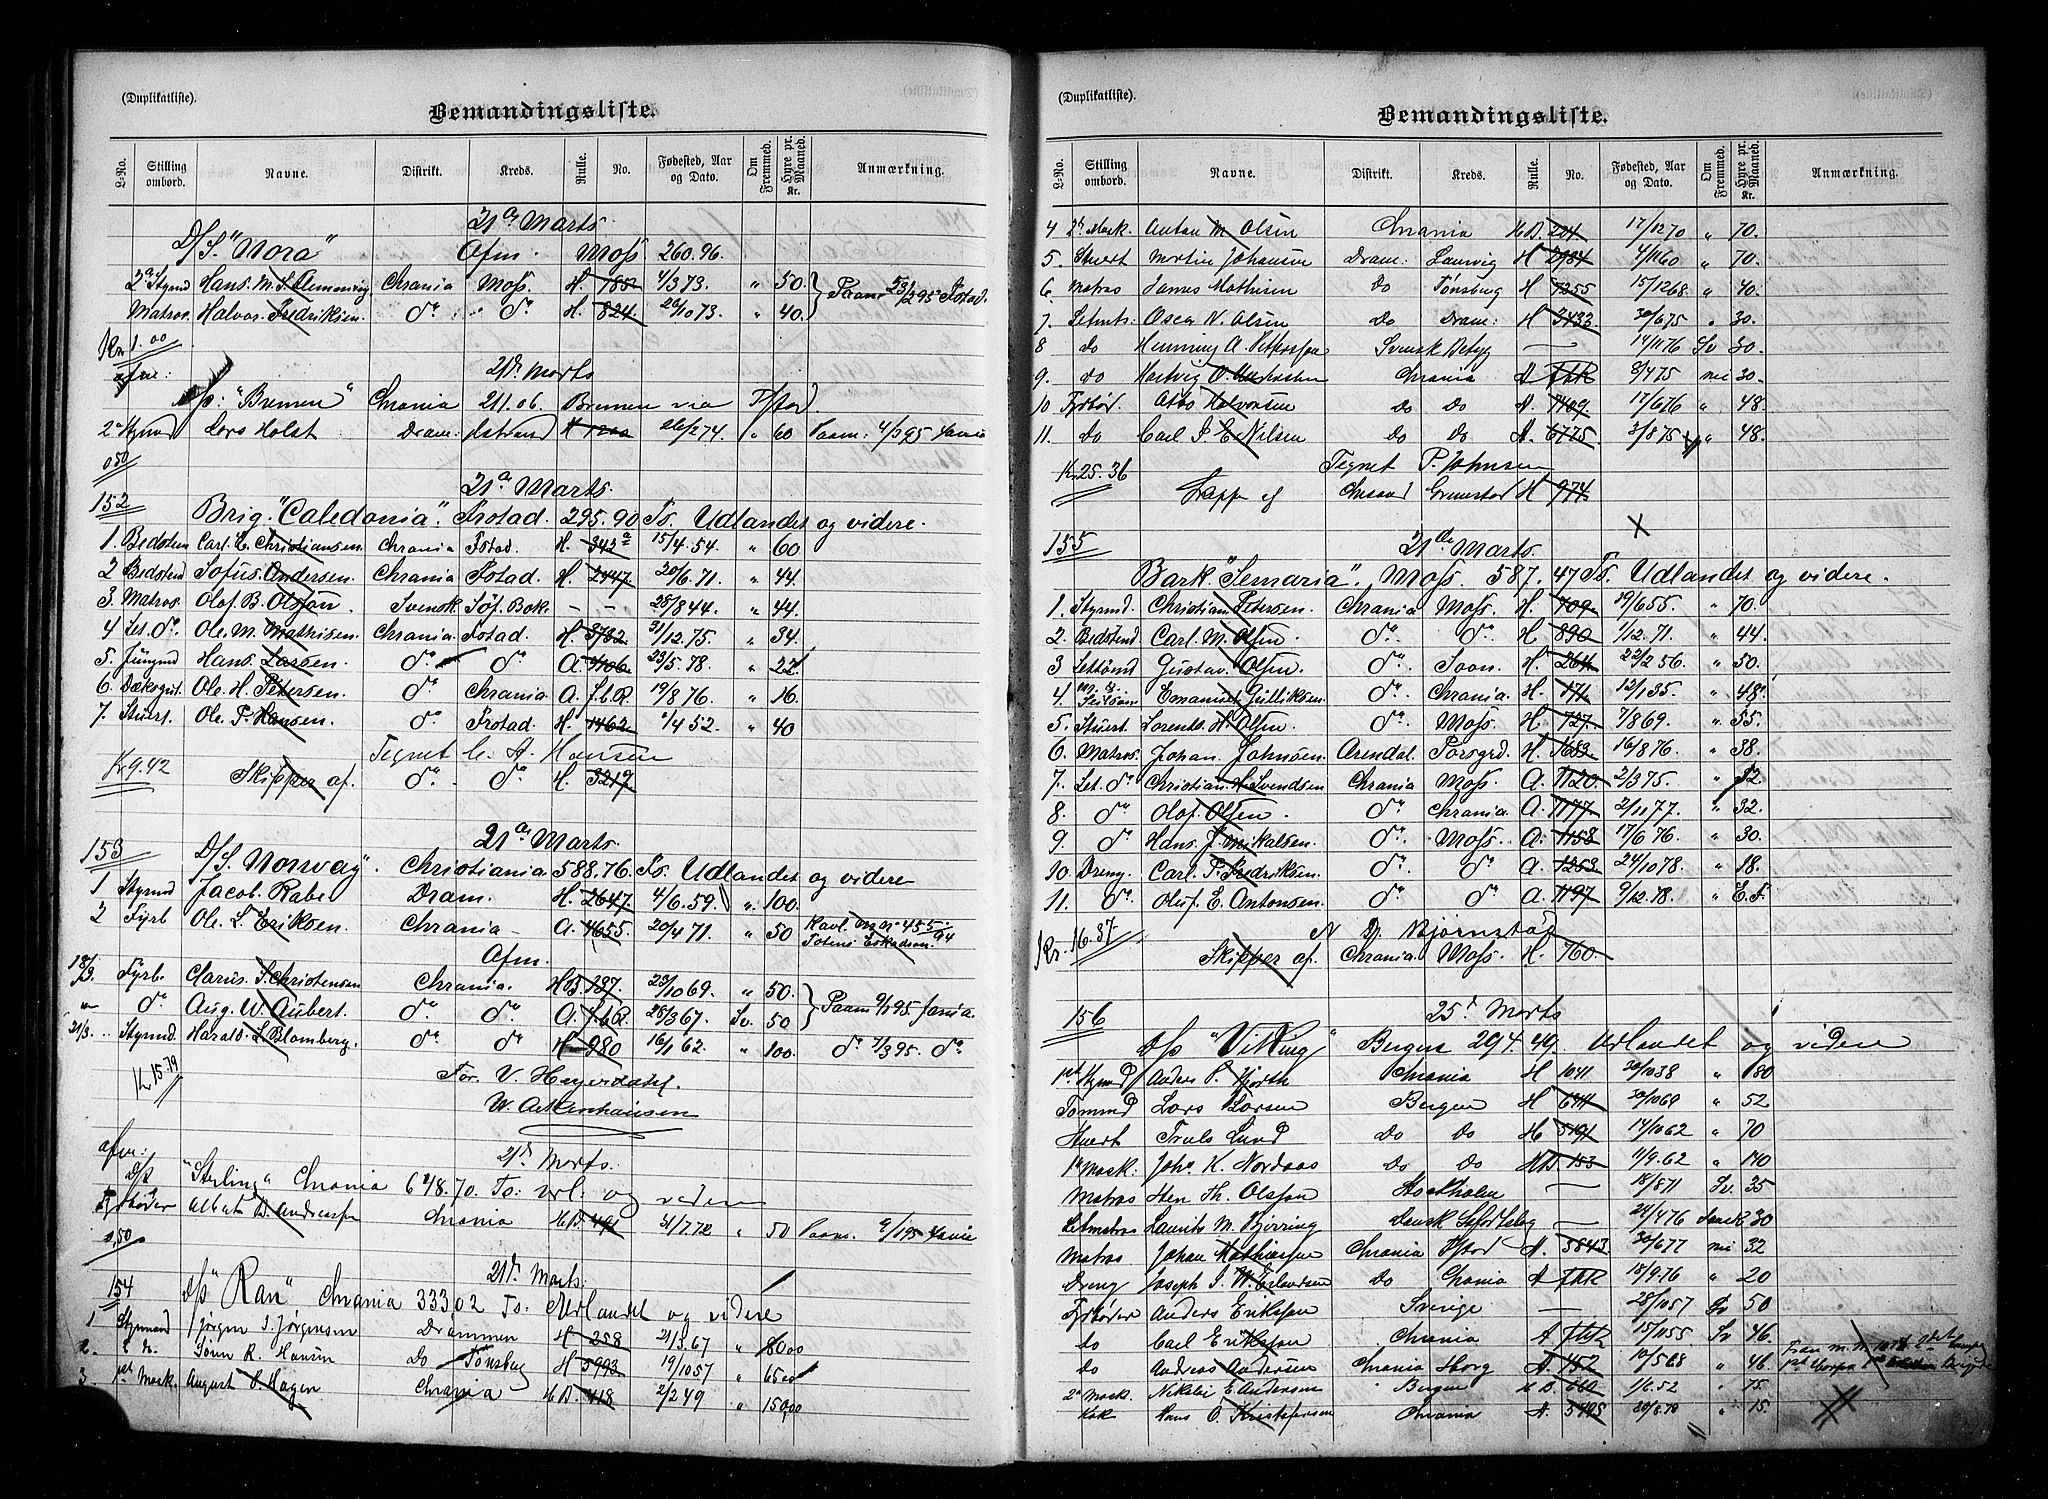 (Duplikatliste).
Bemandingsliste.
L-No. Stilling ombord. Navne. Distrikt. Kreds. Rulle. No. Fødested, Aar og Dato. Om Fremmed. Hyre pr. Maaned. Kr. Anmærkning.
21de Marts.
D/S. "Nora" Afm. Moss 260.96.
2de Styrmd Hans. M. S. Flemming Chrania Moss. H. 785 4/3 73 " 50.
Matros. Halvor. Fredriksen. do do H. 824. " 40. Fstad.
Kr. 1.00
afm: 21de Marts
D/s: "Bremen" Chrania 211.06. Bremen via Fstad.
2de Styrmd Lars Holst Dram: H 26/2 74. " 60 Paam: 4/3 95
0.50
21de Marts.
152 Brig. "Caledonia". Frstad. 295.90 To. Udlandet og videre.
1. Bedstem Carl. E. Christiansen. Chrania Fstad. H. 343a 15/4.54. " 60
2 Bedstmd Sofus. Andersen. Chrania Fstad. H. 2447. 20/6.71. " 44.
3. Matros. Olof. B. Olsson. Svensk Söf. Bok. - - 28/8 44. " 44.
4 Let. do. Ole. M. Mathisen. Chrania. Fstad. H. 3782 31/12.75. " 34
5. Jungmd Hans. Larsen. do do A. 23/5.78. " 22
6. Dæksgut. Ole. H. Petersen. do Chrania. A. f.b.R. 19/8 76. " 16
7. Stuert. Ole. P. Hansen. do Frstad. H. 1462 1/4 52. " 40
Tegnet C. A. Hansen
Kr 9.42 Skipper af. do do H. 3217
21de Marts
153 D/S. "Norway". Christiania 588.76. To. Udlandet og videre
1 Styrmd Jacob. Rabe Dram. H. 2647 4/6.59. " 100.
2 Fyrb Ole. L. Eriksen. Chrania - A. 4655. 20/4 71. " 50
Afm.
18/3. Fyrb. Clarus. S. Christensen Chrania. HB. 187. 23/10 69. " 50.
" do Aug. W. Aubert. do do A. f.b.R. 28/3 67. Sv. 50 Paam 9/1 95
21/3. Styrmd. Harald. S. Blomberg. do do H. 980 16/1 62. " 100. do 7/3 95. do
Kr 15.79 For. V. Heyerdahl.
W. Ackenhausen
afm: 21de Marts.
D/s "Sterling" Chrania 648.70. To: Udl. og videre
Fyrbøder Albert B. Andreassen Chrania HB. 491 31/7.72 " 50 Paam.
0,50
21de Marts.
154 D/s "Ran" Chrania 333.02 To: Udlandet og videre
1 Styrmand Jørgen S. Jørgensen Drammen H 258 21/3.67 " 80.00
2. Sören R. Hansen Do Tønsberg H 5993 19/10 57 " 65.00
3. 1ste Mask. August P. Hagen Chrania HB. 418 2/2 49 " 150,00
(Duplikatliste).
Bemandingsliste.
L-No. Stilling ombord. Navne. Distrikt. Kreds. Rulle. No. Fødested, Aar og Dato. Om Fremmed. Hyre pr. Maaned. Kr. Anmærkning.
4 2de Mask. Anton M. Olsen Chrania HB. 204. 17/12 70 " 70.
5. Stuert Martin Johansen Dram: Laurvig H 2984 4/11 60 " 70.
6. Matros James Mathisen Do Tønsberg H 7255 15/12 68 " 40.
7. Letmts: Oscar N. Olsen Do Dram: H 3433. 30/6 75 " 30.
8 do Henning A. Pettersson Svensk Betyg — 14/11 76 Sv 30.
9. do Hartvig O. Chrania A FbR 8/4 75 30.
10 Fyrbød. Otto Halvorsen Do Do A. 7409. 17/6 76 " 48.
11. Do Carl S. E. Nilsen Do Do A. 6775 3/8 75. " 48.
Tegnet P. Johnsen
Kr 25.36 Grimstad H 974
155 21de Marts.
Bark. "Semaria". Moss. 587.47 To. Udlandet og videre.
1. Styrmd. Christian. Petersen. Chrania Moss. H. 709. 19/6 55. " 70.
2. Bedstmd Carl. M. Olsen. do do H 890 1/12.71. " 44.
3 Gustav. Olsen. do Soon. H. 264. 22/2 56. " 50.
4. Emanuel Gulliksen. do Chrania. H. 171 12/1 35. " 48.
5. Stuert. Lorentz. H. Olsen. do Moss. H. 727. 7/8 69. " 55.
6. Matros Johan. Johnsen. Arendal. Porsgrd. H. 1683. 16/8 76. " 38.
7. Let. do Christian. H. Svendsen Chrania Moss. A. 1120. 2/3 75. " 32
8. do Olof. Olsen. do Chrania A. 1177. 2/11 77. " 32.
9 do Hans. J. Mikalsen. do Moss. A. 1158 17/6 76. " 30.
10. Dreng. Carl. P. Fredriksen. do do A. 1253. 24/10 78. " 18.
11. do Oluf. E. Antonsen. do do A. 1197 9/12.78. " E.F.
N. D. Bjørnstad
Kr. 16.37 Skipper af. Chrania. Moss. H. 760.
156 25de Marts
D/s "Viking" Bergen 294.49. Udlandet og videre
1ste Styrmd Anders P. Hjorth Chrania H 1041 20/10 38 " 80
Tømmd Lars Larsen Bergen H 6711 20/10 69 " 52
Stuert Truls Lund Do Do H 5191 14/10 62 " 70
1ste Mask. Johs K. Nordaas Do Do HB. 153 11/9.62 " 140
Matros Hen Th. Olsson Stockholm — 18/8 71 Sv. 35
Letmatros Laurits M. Bjerring Dansk — 24/4 76 Dansk 30
Matros Johan Mathiassen Chrania Fstad A. 3843. 30/6 77 32
Dreng Joseph S. W. Erlandsen Do Chrania A FbR 18/9.76 " 20
Fyrbøder Anders Eriksson Sverige — 28/10 57 Sv 50
do Carl Eriksson Chrania A FbR 15/11 55 Sv 46.
do Andreas Andersen Chrania A. 152 10/5 68 " 46.
2de Mask. Nikolai E. Andersen Bergen HB. 660 1/6.52 " 75.
Kok Hans O. Kristofersen Chrania A. 5495 " 15.